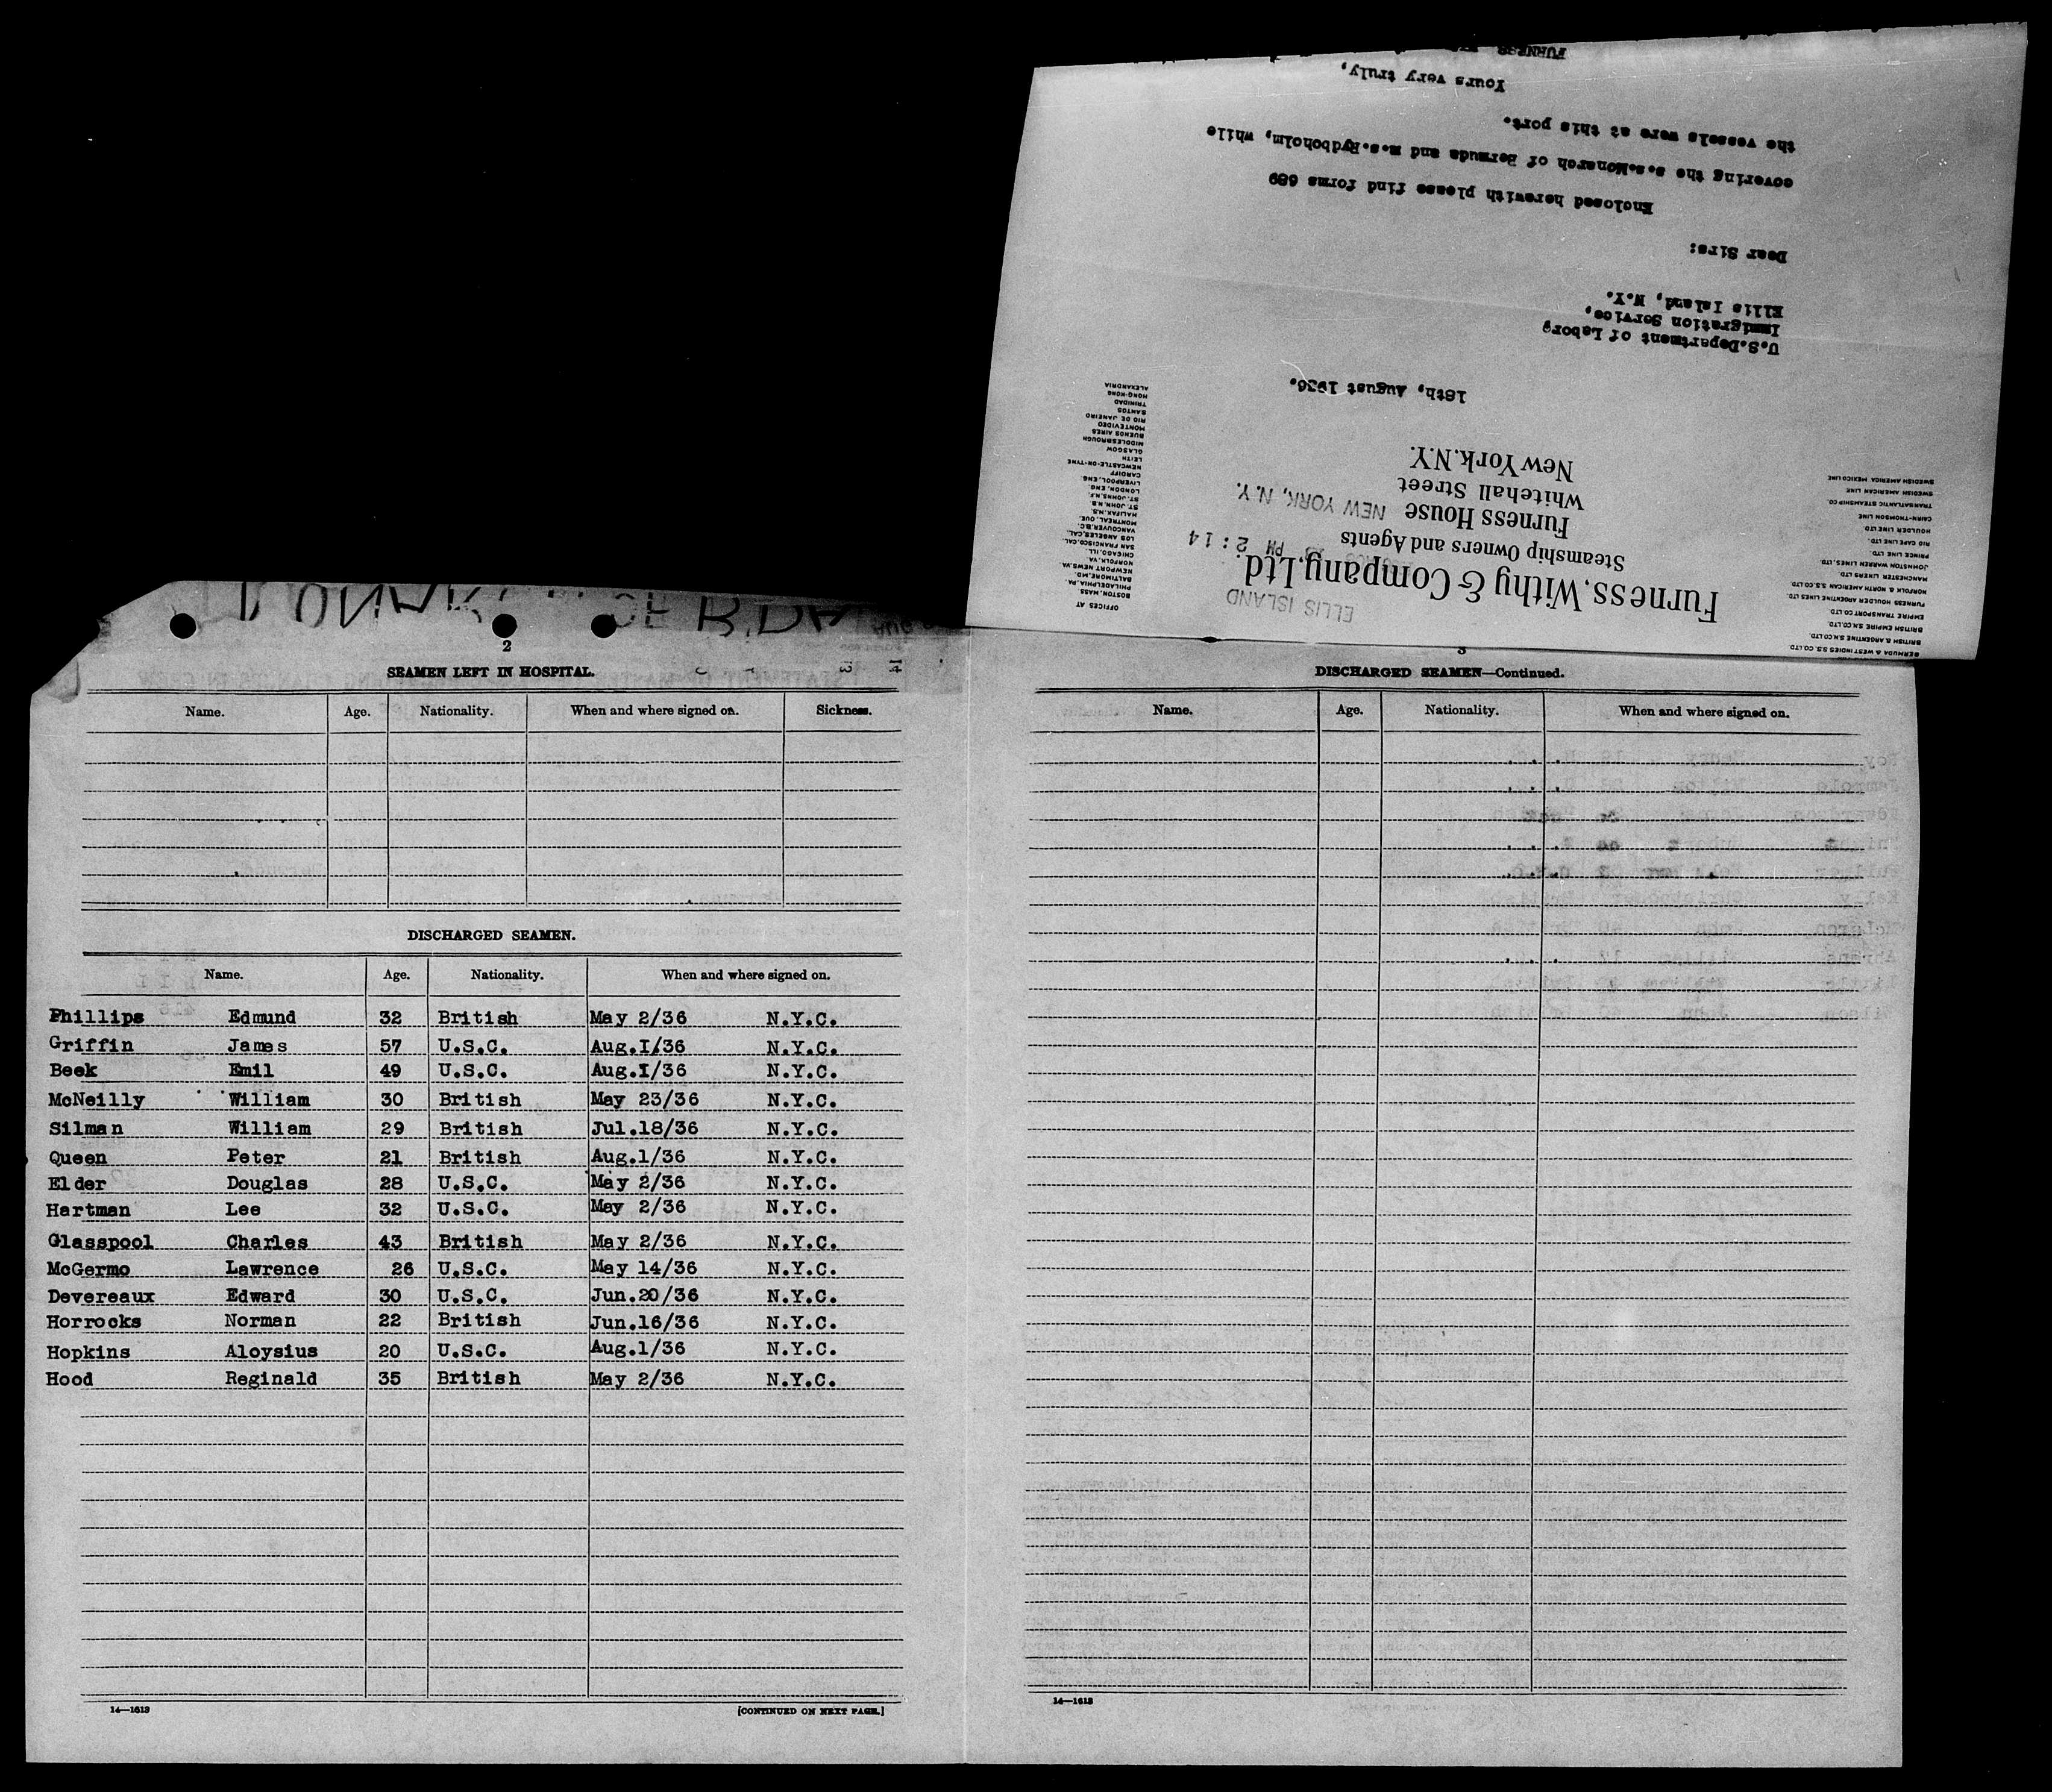 MONARCH OF B'DA
2
SEAMEN LEFT IN HOSPITAL.
Name. Age. Nationality. When and where signed on. Sickness.
DISCHARGED SEAMEN.
Name. Age. Nationality. When and where signed on.
Phillips Edmund 32 British May 2/36 N.Y.C.
Griffin James 57 U.S.C. Aug.I/36 N.Y.C.
Beek Emil 49 U.S.C. Aug.I/36 N.Y.C.
McNeilly William 30 British May 23/36 N.Y.C.
Silman William 29 British Jul.18/36 N.Y.C.
Queen Peter 21 British Aug.1/36 N.Y.C.
Elder Douglas 28 U.S.C. May 2/36 N.Y.C.
Hartman Lee 32 U.S.C. May 2/36 N.Y.C.
Glasspool Charles 43 British May 2/36 N.Y.C.
McGermo Lawrence 26 U.S.C. May 14/36 N.Y.C.
Devereaux Edward 30 U.S.C. Jun.20/36 N.Y.C.
Horrocks Norman 22 British Jun.16/36 N.Y.C.
Hopkins Aloysius 20 U.S.C. Aug.1/36 N.Y.C.
Hood Reginald 35 British May 2/36 N.Y.C.
14—1613
[CONTINUED ON NEXT PAGE.]
3
DISCHARGED SEAMEN—Continued.
Name. Age. Nationality. When and where signed on.
14—1613
BERMUDA & WEST INDIES S.S. CO. LTD.
BRITISH & ARGENTINE S.N.CO.LTD.
BRITISH EMPIRE S.N.CO.LTD.
EMPIRE TRANSPORT CO. LTD.
FURNESS HOULDER ARGENTINE LINES LTD.
NORFOLK & NORTH AMERICAN S.S.CO.LTD.
MANCHESTER LINERS LTD.
JOHNSTON WARREN LINES, LTD.
PRINCE LINE LTD.
RIO CAPE LINE LTD.
HOULDER LINE LTD.
CAIRN-THOMSON LINE
TRANSATLANTIC STEAMSHIP CO.
SWEDISH AMERICAN LINE
SWEDISH AMERICA MEXICO LINE
ELLIS ISLAND
Furness, Withy & Company, Ltd.
PM 2:14
Steamship Owners and Agents
Furness House
NEW YORK, N.Y.
Whitehall Street
New York, N.Y.
OFFICES AT
BOSTON, MASS.
PHILADELPHIA, PA.
BALTIMORE, MD.
NEWPORT NEWS, VA.
NORFOLK, VA.
CHICAGO, ILL.
SAN FRANCISCO, CAL.
LOS ANGELES, CAL.
VANCOUVER, B.C.
MONTREAL, QUE.
HALIFAX, N.S.
ST. JOHN, N.B.
ST. JOHNS, N.F.
LONDON, ENG.
LIVERPOOL, ENG.
CARDIFF
NEWCASTLE-ON-TYNE
LEITH
GLASGOW
MIDDLESBROUGH
BUENOS AIRES
MONTEVIDEO
RIO DE JANEIRO
SANTOS
TRINIDAD
HONG-KONG
ALEXANDRIA
18th, August 1936.
U.S.Department of Labor,
Immigration Service,
Ellis Island, N.Y.
Dear Sirs:
Enclosed herewith please find forms 689
covering the s.s.Monarch of Bermuda and m.s.Rydboholm, while
the vessels were at this port.
Yours very truly,
FURNESS